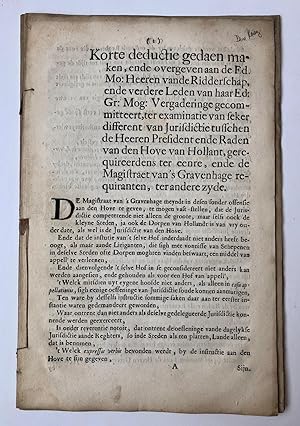 (1)
Korte deductie gedaen ma-
ken, ende overgeven aan de Ed.
Mo: Heeren vande Ridderschap,
ende verdere Leden van haar Ed:
Gr: Mog: Vergaderinge gecom-
mitteert, ter examinatie van seker
different van Jurisdictie tusschen
de Heeren President ende Raden
van den Hove van Hollant, gere-
quireerdens ter eenre, ende de
Magistraet van 's Gravenhage re-
quiranten, ter andere zyde.
DE Magistraet van 's Gravenhage meynde in desen sonder offensie
aan den Hove te geven, te mogen vast stellen, dat de Juris-
dictie competeerende niet alleen de groote, maar selfs oock de
kleyne Steden, ja ook de Dorpen van Hollandt is van vry on-
der date, als wel is de Jurisdictie van den Hove.
Ende dat de instutie van 't selve Hof inderdaadt niet anders heeft be-
oogt, als maar aande Litiganten, die sigh met vonnisse van Schepenen
in desselfs Steden ofte Dorpen mochten vinden beswaart, een middel van
appel te verleenen,
Ende dienvolgende 't selve Hof in se geconsidereert niet anders kan
werden aangesien, ende gehouden als voor een Hof van appel,
't Welck mitsdien uyt eygene hoofde niet anders, als alleen in cas
pellationis, sigh eenige oeffeninge van Jurisdictie soude konnen aanmatigen,
Ten ware by desselfs instructie sommige saken daar aan ter eerster in-
stantie waren gedemandeert geworden.
Waar ontrent dan niet anders als deselve gedelegueerde Jurisdictie kon-
nende werden geexerceert,
Is onder reverentie notoir, dat ontrent de oeffeninge vande dagelykse
Jurisdictie aande Reghters, so inde Steden als ten platten, Lande alleen,
dat is benomen,
't Welck expressis verbis bevonden werde, by de instructie aan den
Hove te sijn gegeven,
A
Sijn.